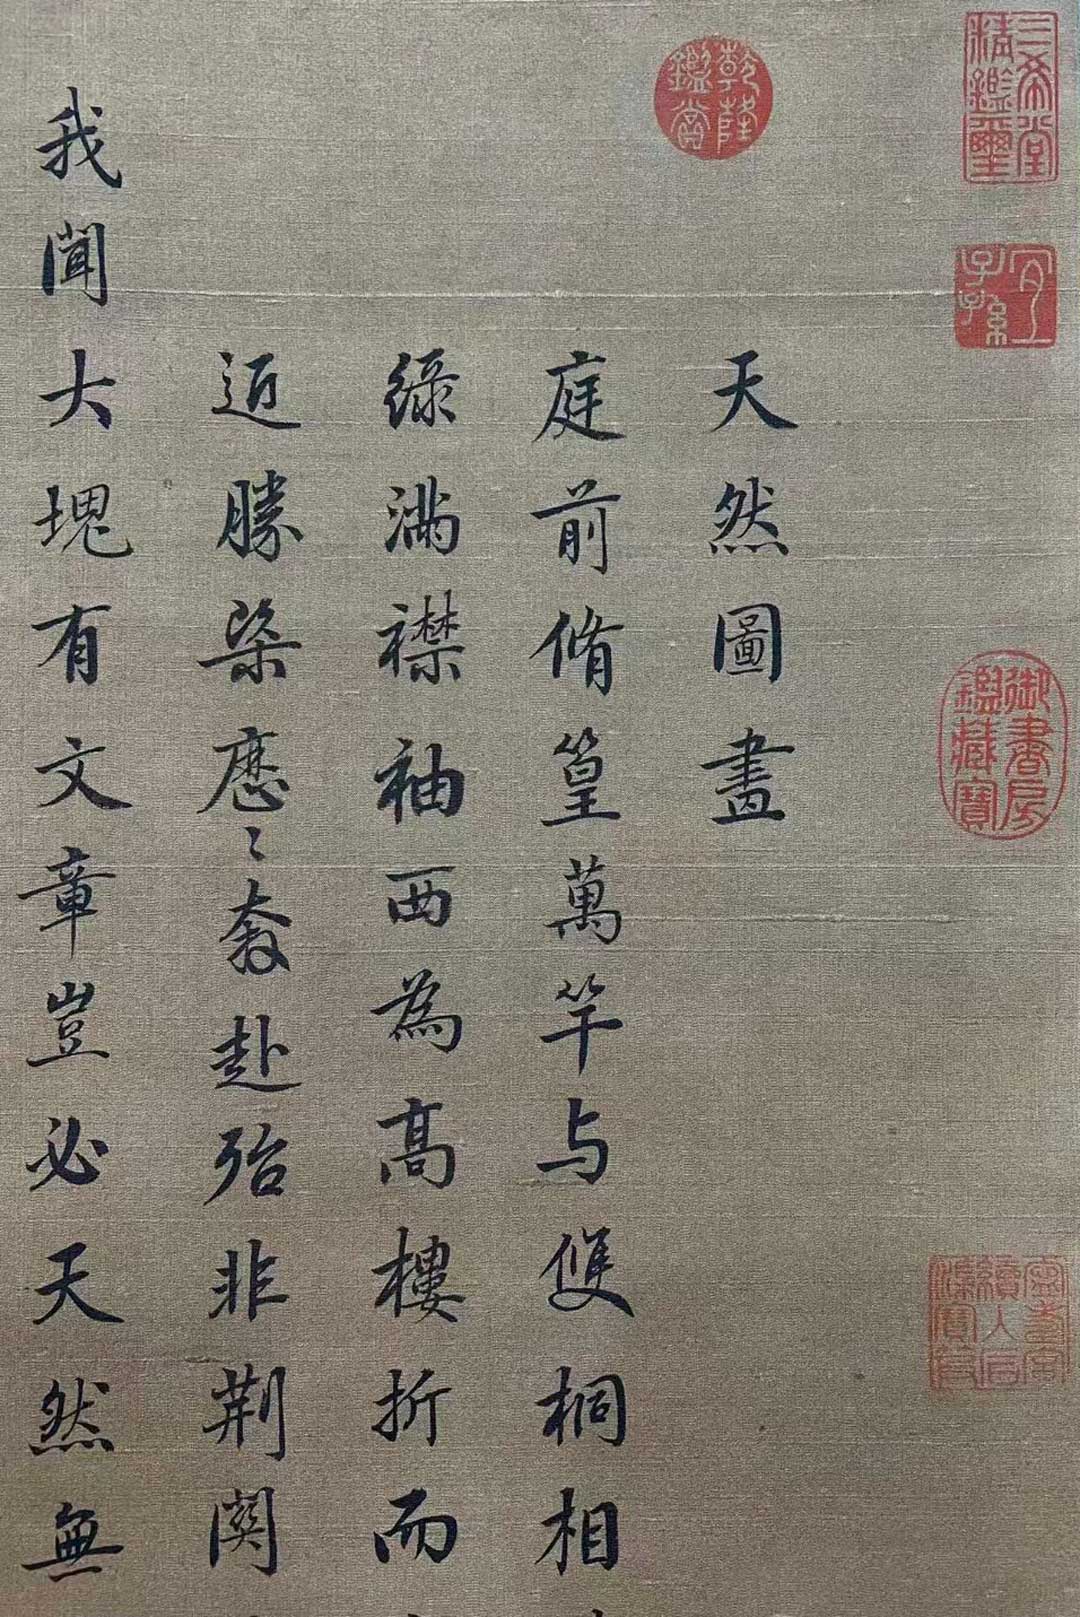 三希堂
精鑑璽
宜
子孫
御書房
鑑藏寶
乾隆
鑑賞
天然圖畫
庭前脩篁萬竿与雙桐相
綠滿襟袖西為高樓折而
近勝槩應〻奔赴殆非荆關
我聞大塊有文章豈必天然無